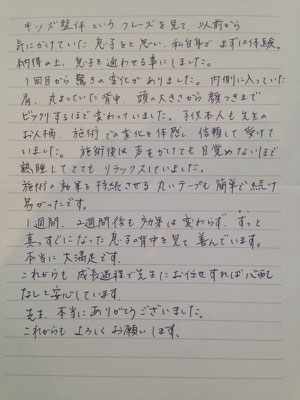 キッズ整体というフレーズを見て、以前から
気にかけていた息子をと思い、私自身がまずは体験。
納得の上、息子を通わせる事にしました。
1回目から驚きの変化がありました。内側に入っていた
肩、丸まっていた背中、頭の大きさから顔つきまで
ビックリするほど変わっていました。子供本人も先生の
お人柄、施術での変化を体感し、信頼して受けて
いました。施術後は声をかけても目覚めないほど
熟睡してとてもリラックスしていました。
施術の効果を持続させる丸いテープも簡単で続け
易かったです。
1週間、2週間後も効果は変わらず、ずっと
真っすぐになった息子の背中を見て喜んでいます。
本当に大満足です。
これからも成長過程で先生にお任せすれば心配も
なしと安心しています。
先生、本当にありがとうございました。
これからもよろしくお願いします。